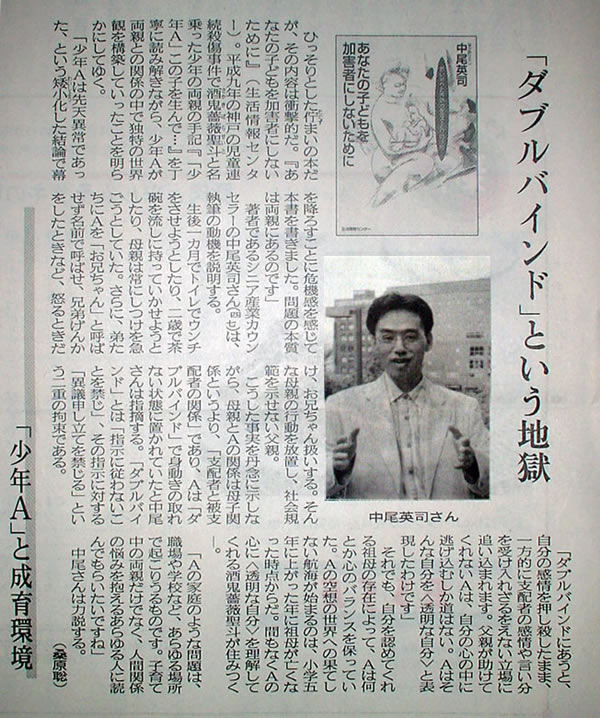 「ダブルバインド」という地獄
「少年A」と成育環境
中尾英司
あなたの子どもを
加害者にしないために
生活情報センター
中尾英司さん
ひっそりとした佇まいの本だ
が、その内容は衝撃的だ。『あ
なたの子どもを加害者にしない
ために』（生活情報センタ
ー）。平成九年の神戸の児童連
続殺傷事件で酒鬼薔薇聖斗と名
乗った少年の両親の手記『「少
年A」この子を生んで…』を丁
寧に読み解きながら、少年Aが
両親との関係の中で独特の世界
観を構築していったことを明ら
かにしてゆく。
「少年Aは先天異常であっ
た、という矮小化した結論で幕
を降ろすことに危機感を感じて
本書を書きました。問題の本質
は両親にあるのです」
著者であるシニア産業カウン
セラーの中尾英司さんは、
執筆の動機を説明する。
生後一カ月でトイレでウンチ
をさせようとしたり、二歳で茶
碗を流しに持っていかせようと
したり、母親は常にしつけを急
ごうとしていた。さらに、弟た
ちにAを「お兄ちゃん」と呼ば
せず名前で呼ばせ、兄弟げんか
をしたときなど、怒るときだ
け、お兄ちゃん扱いする。そん
な母親の行動を放置し、社会規
範を示せない父親。
こうした事実を丹念に示しな
がら、母親とAの関係は母子関
係というより、「支配者と被支
配者の関係」であり、Aは「ダ
ブルバインド」で身動きの取れ
ない状態に置かれていたと中尾
さんは指摘する。「ダブルバイ
ンド」とは「指示に従わないこ
とを禁じ」、その指示に対する
「異議申し立てを禁じる」とい
う二重の拘束である。
「ダブルバインドにあうと、
自分の感情を押し殺したまま、
一方的に支配者の感情や言い分
を受け入れざるをえない立場に
追い込まれます。父親が助けて
くれない人は、自分の心の中に
逃げ込むしか道はない。Aはそ
んな自分を〈透明な自分〉と表
現したわけです」
それでも、自分を認めてくれ
る祖母の存在によって、Aは何
とか心のバランスを保ってい
た。Aの空想の世界への果てし
ない航海が始まるのは、小学五
年に上がった年に祖母が亡くな
った時点からだ。間もなくAの
心に〈透明な自分〉を理解して
くれる酒鬼薔薇聖斗が住みつく
。
「Aの家庭のような問題は、
職場や学校など、あらゆる場所
で起こりうるものです。子育て
中の両親だけでなく、人間関係
の悩みを抱えるあらゆる人に読
んでもらいたいですね」
中尾さんは力説する。
（桑原聡）